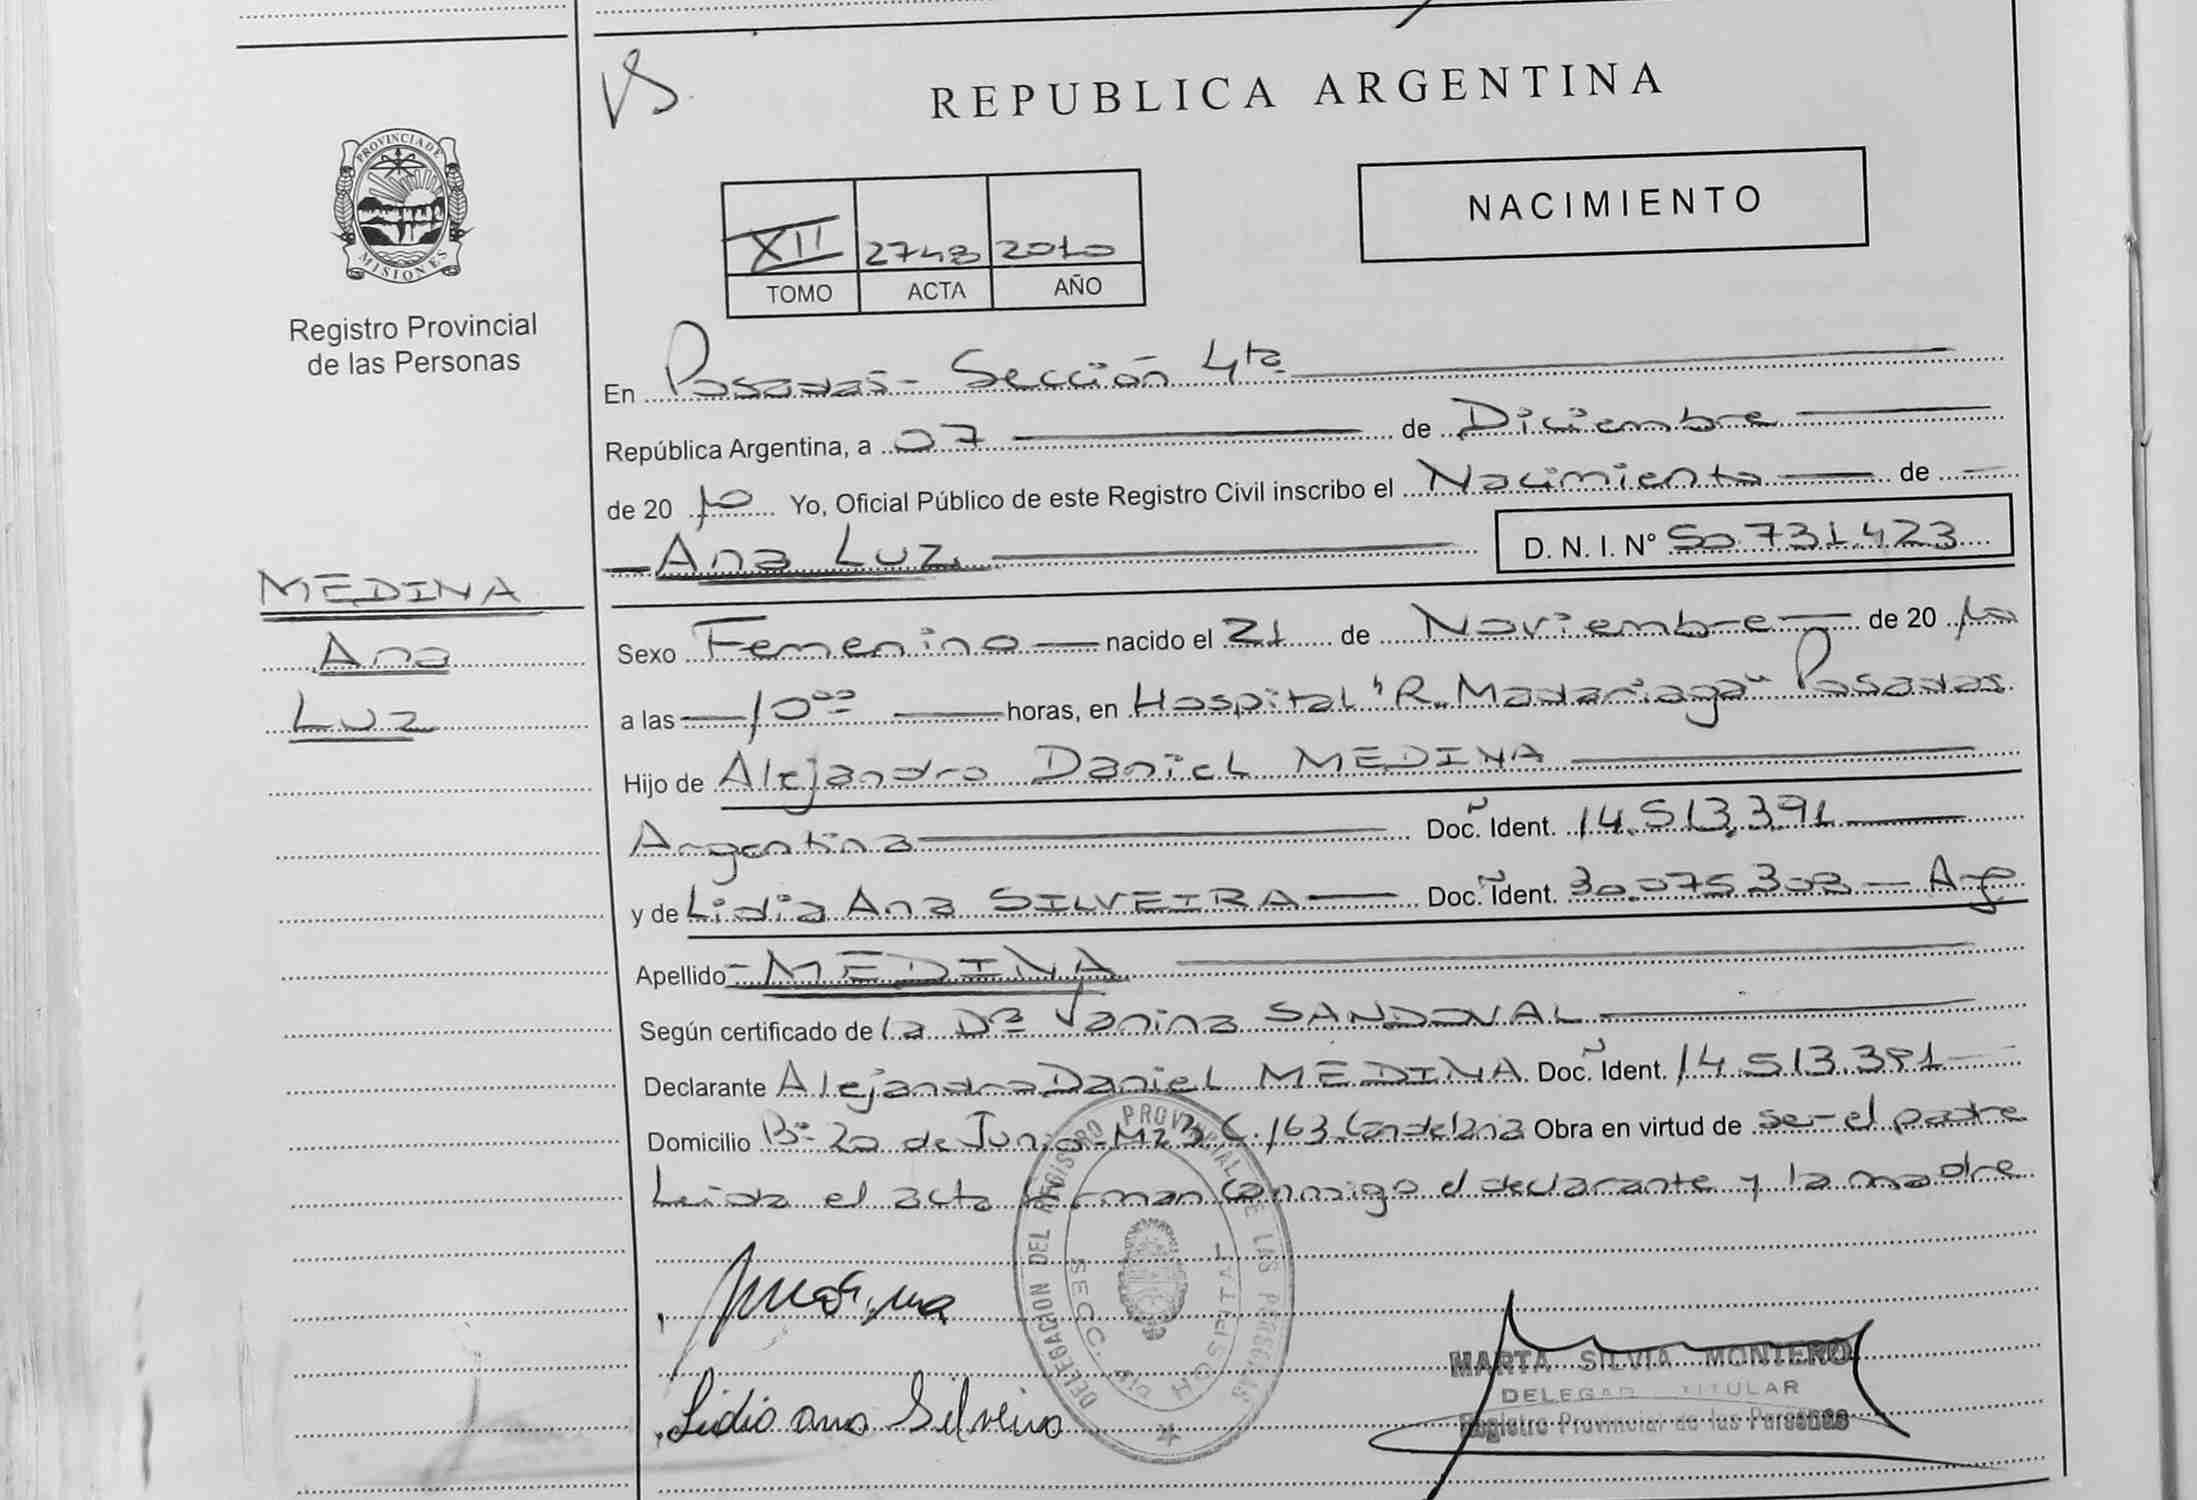 REPUBLICA ARGENTINA
PROVINCIA DE MISIONES
Registro Provincial
de las Personas
NACIMIENTO
XII 2748 2010
TOMO ACTA AÑO
En Posadas - Sección 4ta
República Argentina, a 07 de Diciembre
de 2010 Yo, Oficial Público de este Registro Civil inscribo el Nacimiento de
Ana Luz D. N. I. N° 50.731.423
MEDINA
Ana
Luz
Sexo Femenino nacido el 21 de Noviembre de 2010
a las 10 00 horas, en Hospital "R. Madariaga" Posadas
Hijo de Alejandro Daniel MEDINA
Argentina Doc. Ident. 14.513.391
y de Lidia Ana SILVEIRA Doc. Ident. 30.075.303 - Arg
Apellido MEDINA
Según certificado de la Dra Vanina SANDOVAL
Declarante Alejandro Daniel MEDINA Doc. Ident. 14.513.391
Domicilio Bº 20 de Junio - Mz 3 C. 163 Candelaria Obra en virtud de ser el padre
Leida el acta firman conmigo el declarante y la madre
DELEGACION DEL REGISTRO PROVINCIAL DE LAS PERSONAS
SECC. 4ta HOSPITAL
Medina
Lidia ana Silveira
MARTA SILVIA MONTERO
DELEGADA TITULAR
Registro Provincial de las Personas